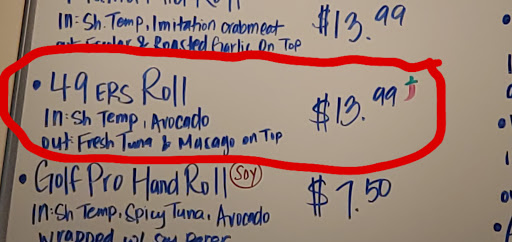 In: Sh. Temp, Imitation crabmeat $13.99
& Roasted Garlic On Top
• 49ERS Roll
In: Sh Temp, Avocado $13.99
Out: Fresh Tuna & Masago on Top
• Golf Pro Hand Roll Soy $7.50
In: Sh Temp, Spicy Tuna, Avocado
Wrapped w/ Soy Paper